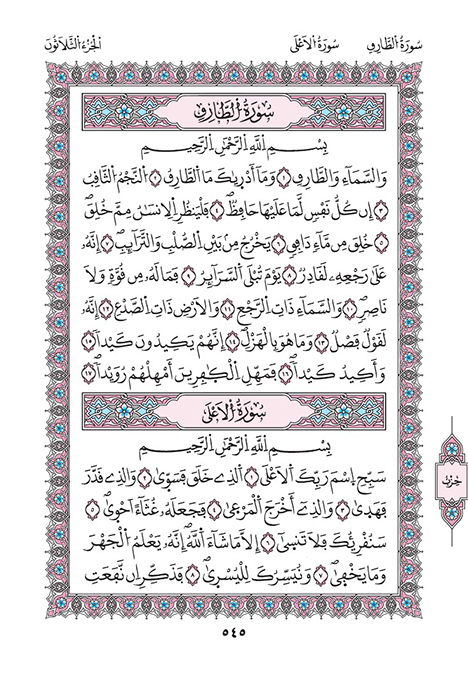 سُورَةُ الطَّارِقِ سُورَةُ الْأَعْلَى الْجُزْءُ الثَّلَاثُونَ
سُورَةُ الطَّارِقِ
بِسْمِ اللَّهِ الرَّحْمَٰنِ الرَّحِيمِ
وَالسَّمَآءِ وَالطَّارِقِ ١ وَمَآ أَدْرٜيٰكَ مَا اَلطَّارِقُ ٢ اُلنَّجْمُ اُلثَّاقِبُ
٣ إِن كُلُّ نَفْسٍ لَّمَا عَلَيْهَا حَافِظٌ ٤ فَلْيَنظُرِ اِلْانسَٰنُ مِمَّ خُلِقَ
٥ خُلِقَ مِن مَّآءٍ دَافِقٍ ٦ يَخْرُجُ مِنۢ بَيْنِ اِلصُّلْبِ وَالتَّرَآئِبِ ٧ إِنَّهُۥ
عَلَىٰ رَجْعِهِۦ لَقَادِرٌ ٨ يَوْمَ تُبْلَى اَلسَّرَآئِرُ ٩ فَمَا لَهُۥ مِن قُوَّةٍ وَلَا
نَاصِرٍ ١٠ وَالسَّمَآءِ ذَاتِ اِلرَّجْعِ ١١ وَالَارْضِ ذَاتِ اِلصَّدْعِ ١٢ إِنَّهُۥ
لَقَوْلٌ فَصْلٌ ١٣ وَمَا هُوَ بِالْهَزْلِ ١٤ إِنَّهُمْ يَكِيدُونَ كَيْداً ١٥
وَأَكِيدُ كَيْداً ١٦ فَمَهِّلِ اِلْكٰ۪فِرِينَ أَمْهِلْهُمْ رُوَيْداً ١٧
سُورَةُ الْأَعْلَى
بِسْمِ اللَّهِ الرَّحْمَٰنِ الرَّحِيمِ
سَبِّحِ اِسْمَ رَبِّكَ اَلَاعْلَى ١ اَلذِے خَلَقَ فَسَوّ۪ىٰ ٢ وَالذِے قَدَّرَ
فَهَد۪ىٰ ٣ وَالذِےٓ أَخْرَجَ اَلْمَرْع۪ىٰ ٤ فَجَعَلَهُۥ غُثَآءً اَحْو۪ىٰ ٥
سَنُقْرِئُكَ فَلَا تَنس۪ىٰٓ ٦ إِلَّا مَا شَآءَ اَللَّهُ إِنَّهُۥ يَعْلَمُ اُلْجَهْرَ
وَمَا يَخْف۪ىٰ ٧ وَنُيَسِّرُكَ لِلْيُسْر۪ىٰ ٨ فَذَكِّرِ اِن نَّفَعَتِ
حزب
٥٤٥